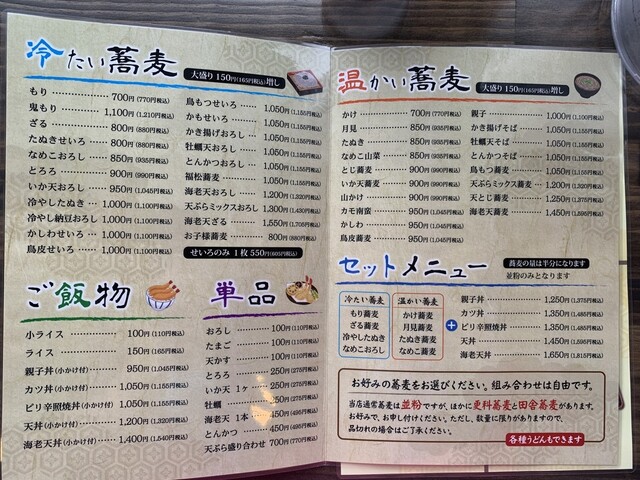 冷たい蕎麦
大盛り150円(165円税込)増し
もり 700円(770円税込)
鬼もり 1,100円(1,210円税込)
ざる 800円(880円税込)
たぬきせいろ 800円(880円税込)
なめこおろし 850円(935円税込)
とろろ 900円(990円税込)
いか天おろし 950円(1,045円税込)
冷やしたぬき 1,000円(1,100円税込)
冷やし納豆おろし 1,000円(1,100円税込)
かしわせいろ 1,000円(1,100円税込)
鳥皮せいろ 1,000円(1,100円税込)
鳥もつせいろ 1,050円(1,155円税込)
かもせいろ 1,050円(1,155円税込)
かき揚げおろし 1,050円(1,155円税込)
牡蠣天おろし 1,050円(1,155円税込)
とんかつおろし 1,050円(1,155円税込)
福松蕎麦 1,050円(1,155円税込)
海老天おろし 1,200円(1,320円税込)
天ぷらミックスおろし 1,300円(1,430円税込)
海老天ざる 1,550円(1,705円税込)
お子様蕎麦 800円(880円税込)
せいろのみ 1枚550円(605円税込)
ご飯物
小ライス 100円(110円税込)
ライス 150円(165円税込)
親子丼(小かけ付) 950円(1,045円税込)
カツ丼(小かけ付) 1,050円(1,155円税込)
ピリ辛照焼丼(小かけ付) 1,050円(1,155円税込)
天丼(小かけ付) 1,200円(1,320円税込)
海老天丼(小かけ付) 1,400円(1,540円税込)
単品
おろし 100円(110円税込)
たまご 100円(110円税込)
天かす 100円(110円税込)
とろろ 250円(275円税込)
いか天 1ヶ 250円(275円税込)
牡蠣
海老天 1本
とんかつ 450円(495円税込)
天ぷら盛り合わせ 700円(770円税込)
温かい蕎麦
大盛り150円(165円税込)増し
かけ 700円(770円税込)
月見 850円(935円税込)
たぬき 850円(935円税込)
なめこ山菜 850円(935円税込)
とじ蕎麦 900円(990円税込)
いか天蕎麦 900円(990円税込)
山かけ 900円(990円税込)
カモ南蛮 950円(1,045円税込)
かしわ 950円(1,045円税込)
鳥皮蕎麦 950円(1,045円税込)
親子 1,000円(1,100円税込)
かき揚げそば 1,050円(1,155円税込)
牡蠣天そば 1,050円(1,155円税込)
とんかつそば 1,050円(1,155円税込)
鳥もつ蕎麦 1,050円(1,155円税込)
天ぷらミックス蕎麦 1,200円(1,320円税込)
天とじ蕎麦 1,250円(1,375円税込)
海老天蕎麦 1,450円(1,595円税込)
セットメニュー
蕎麦の量は半分になります
並粉のみとなります
冷たい蕎麦
もり蕎麦
ざる蕎麦
冷やしたぬき
なめこおろし
温かい蕎麦
かけ蕎麦
月見蕎麦
たぬき蕎麦
なめこ蕎麦
+
親子丼 1,250円(1,375円税込)
カツ丼 1,350円(1,485円税込)
ピリ辛照焼丼 1,350円(1,485円税込)
天丼 1,450円(1,595円税込)
海老天丼 1,650円(1,815円税込)
お好みの蕎麦をお選びください。組み合わせは自由です。
当店通常蕎麦は並粉ですが、ほかに更科蕎麦と田舎蕎麦があります。
お好みで、お申し付けください。ただし、数量に限りがありますので、
品切れの場合はご了承ください。
各種うどんもできます